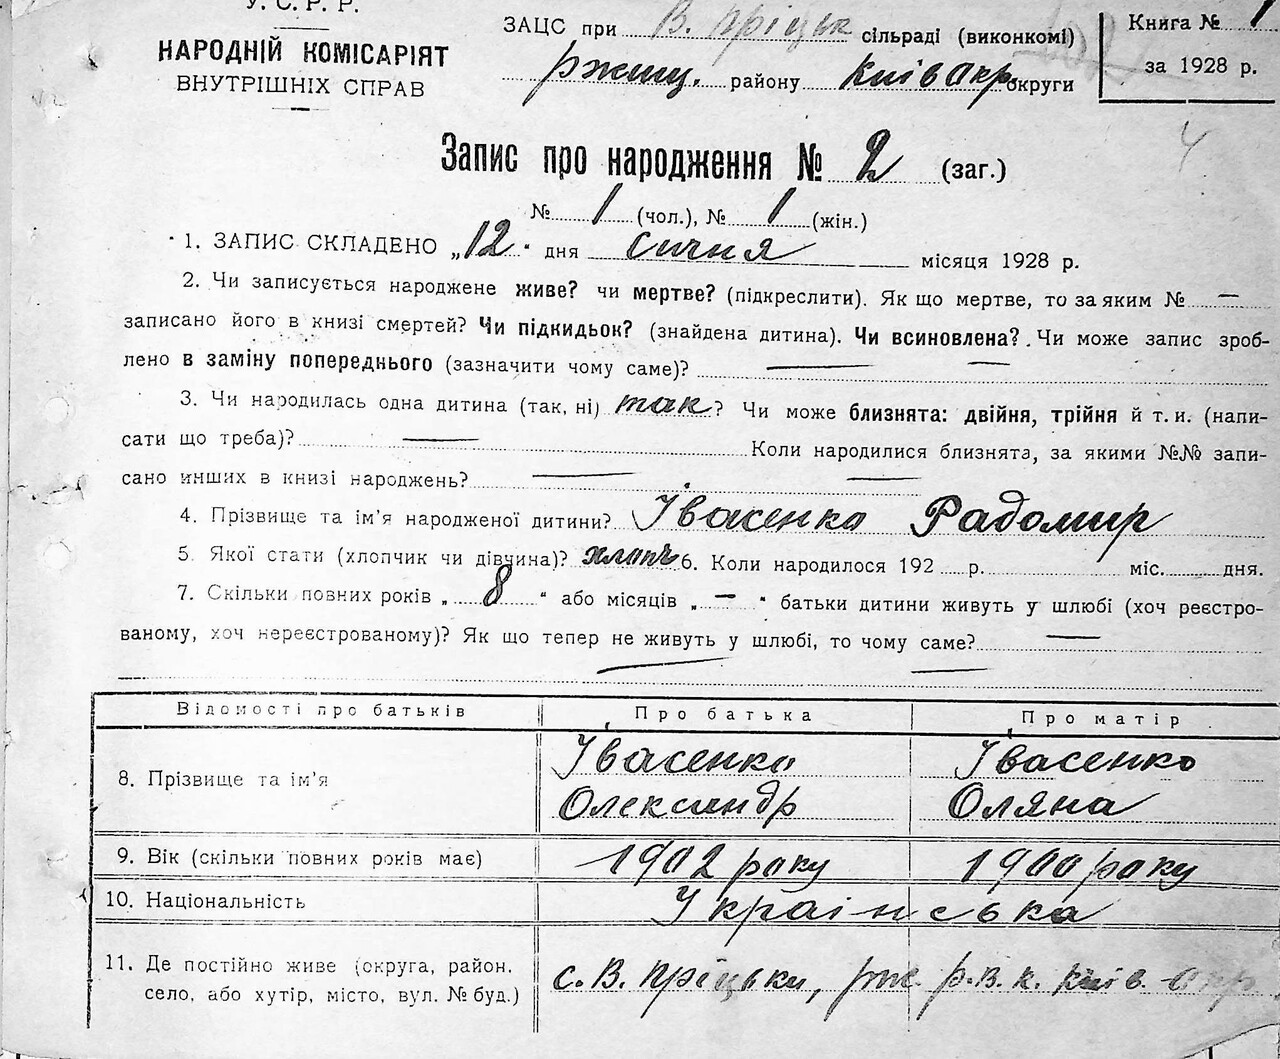 У. С. Р. Р.
НАРОДНІЙ КОМІСАРІЯТ
ВНУТРІШНІХ СПРАВ
ЗАЦС при В. Пріцьк сільраді (виконкомі)
Ржищ. району Київ окр. округи
Книга № 1
за 1928 р.
4
Запис про народження № 2 (заг.)
№ 1 (чол.), № 1 (жін.)
1. ЗАПИС СКЛАДЕНО „12“ дня січня місяця 1928 р.
2. Чи записується народжене живе? чи мертве? (підкреслити). Як що мертве, то за яким № —
записано його в книзі смертей? Чи підкидьок? (знайдена дитина). Чи всиновлена? Чи може запис зроб-
лено в заміну попереднього (зазначити чому саме)? —
3. Чи народилась одна дитина (так, ні) так? Чи може близнята: двійня, трійня й т. и. (напи-
сати що треба)? — Коли народилися близнята, за якими №№ запи-
сано инших в книзі народжень? —
4. Прізвище та ім’я народженої дитини? Івасенко Радомир
5. Якої стати (хлопчик чи дівчина)? хлопч 6. Коли народилося 192 р. міс. дня.
7. Скільки повних років „8“ або місяців „—“ батьки дитини живуть у шлюбі (хоч реєстро-
ваному, хоч нереєстрованому)? Як що тепер не живуть у шлюбі, то чому саме? —
Відомості про батьків Про батька Про матір
8. Прізвище та ім’я Івасенко Олександр Івасенко Оляна
9. Вік (скільки повних років має) 1902 року 1900 року
10. Національність Українська
11. Де постійно живе (округа, район, село, або хутір, місто, вул. № буд.) с. В. Пріцьки, рж. р.в.к. Київ. окр